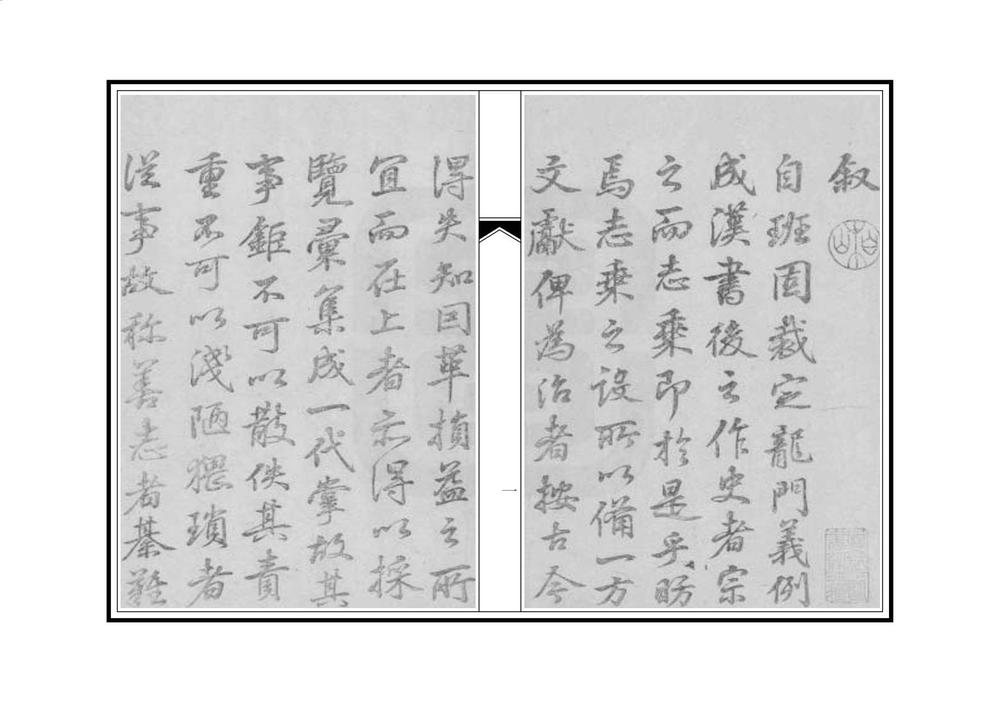 叙
自班固裁定龍門義例
成漢書後之作史者宗
之而志乘即於是乎昉
焉志乘之設所以備一方
文獻俾為治者按古今
得失知因革損益之所
宜而在上者亦得以採
覽彙集成一代掌故其
事鉅不可以散佚其責
重不可以淺陋猥瑣者
從事故称善志者綦難
一